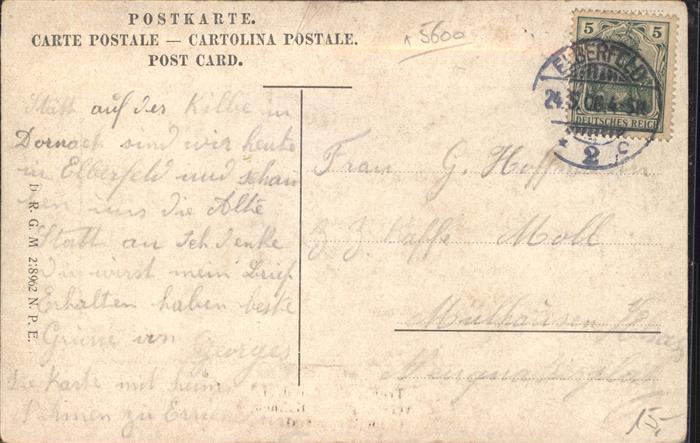 POSTKARTE.
CARTE POSTALE — CARTOLINA POSTALE.
POST CARD.
5600
5 5
DEUTSCHES REICH
ELBERFELD
2 c
Statt auf der Kilbe in
Dornach sind wir heute
in Elberfeld und schau
uns die Alte
Statt an Ich denke
Du wirst mein Brief
Erhalten haben beste
Grüsse von
Georges
Die Karte mit heim
zu
R. G. M 218962 N. P. E.
Frau G. Hoffmann
z. Z. Kaffe Moll
Mülhausen Elsas